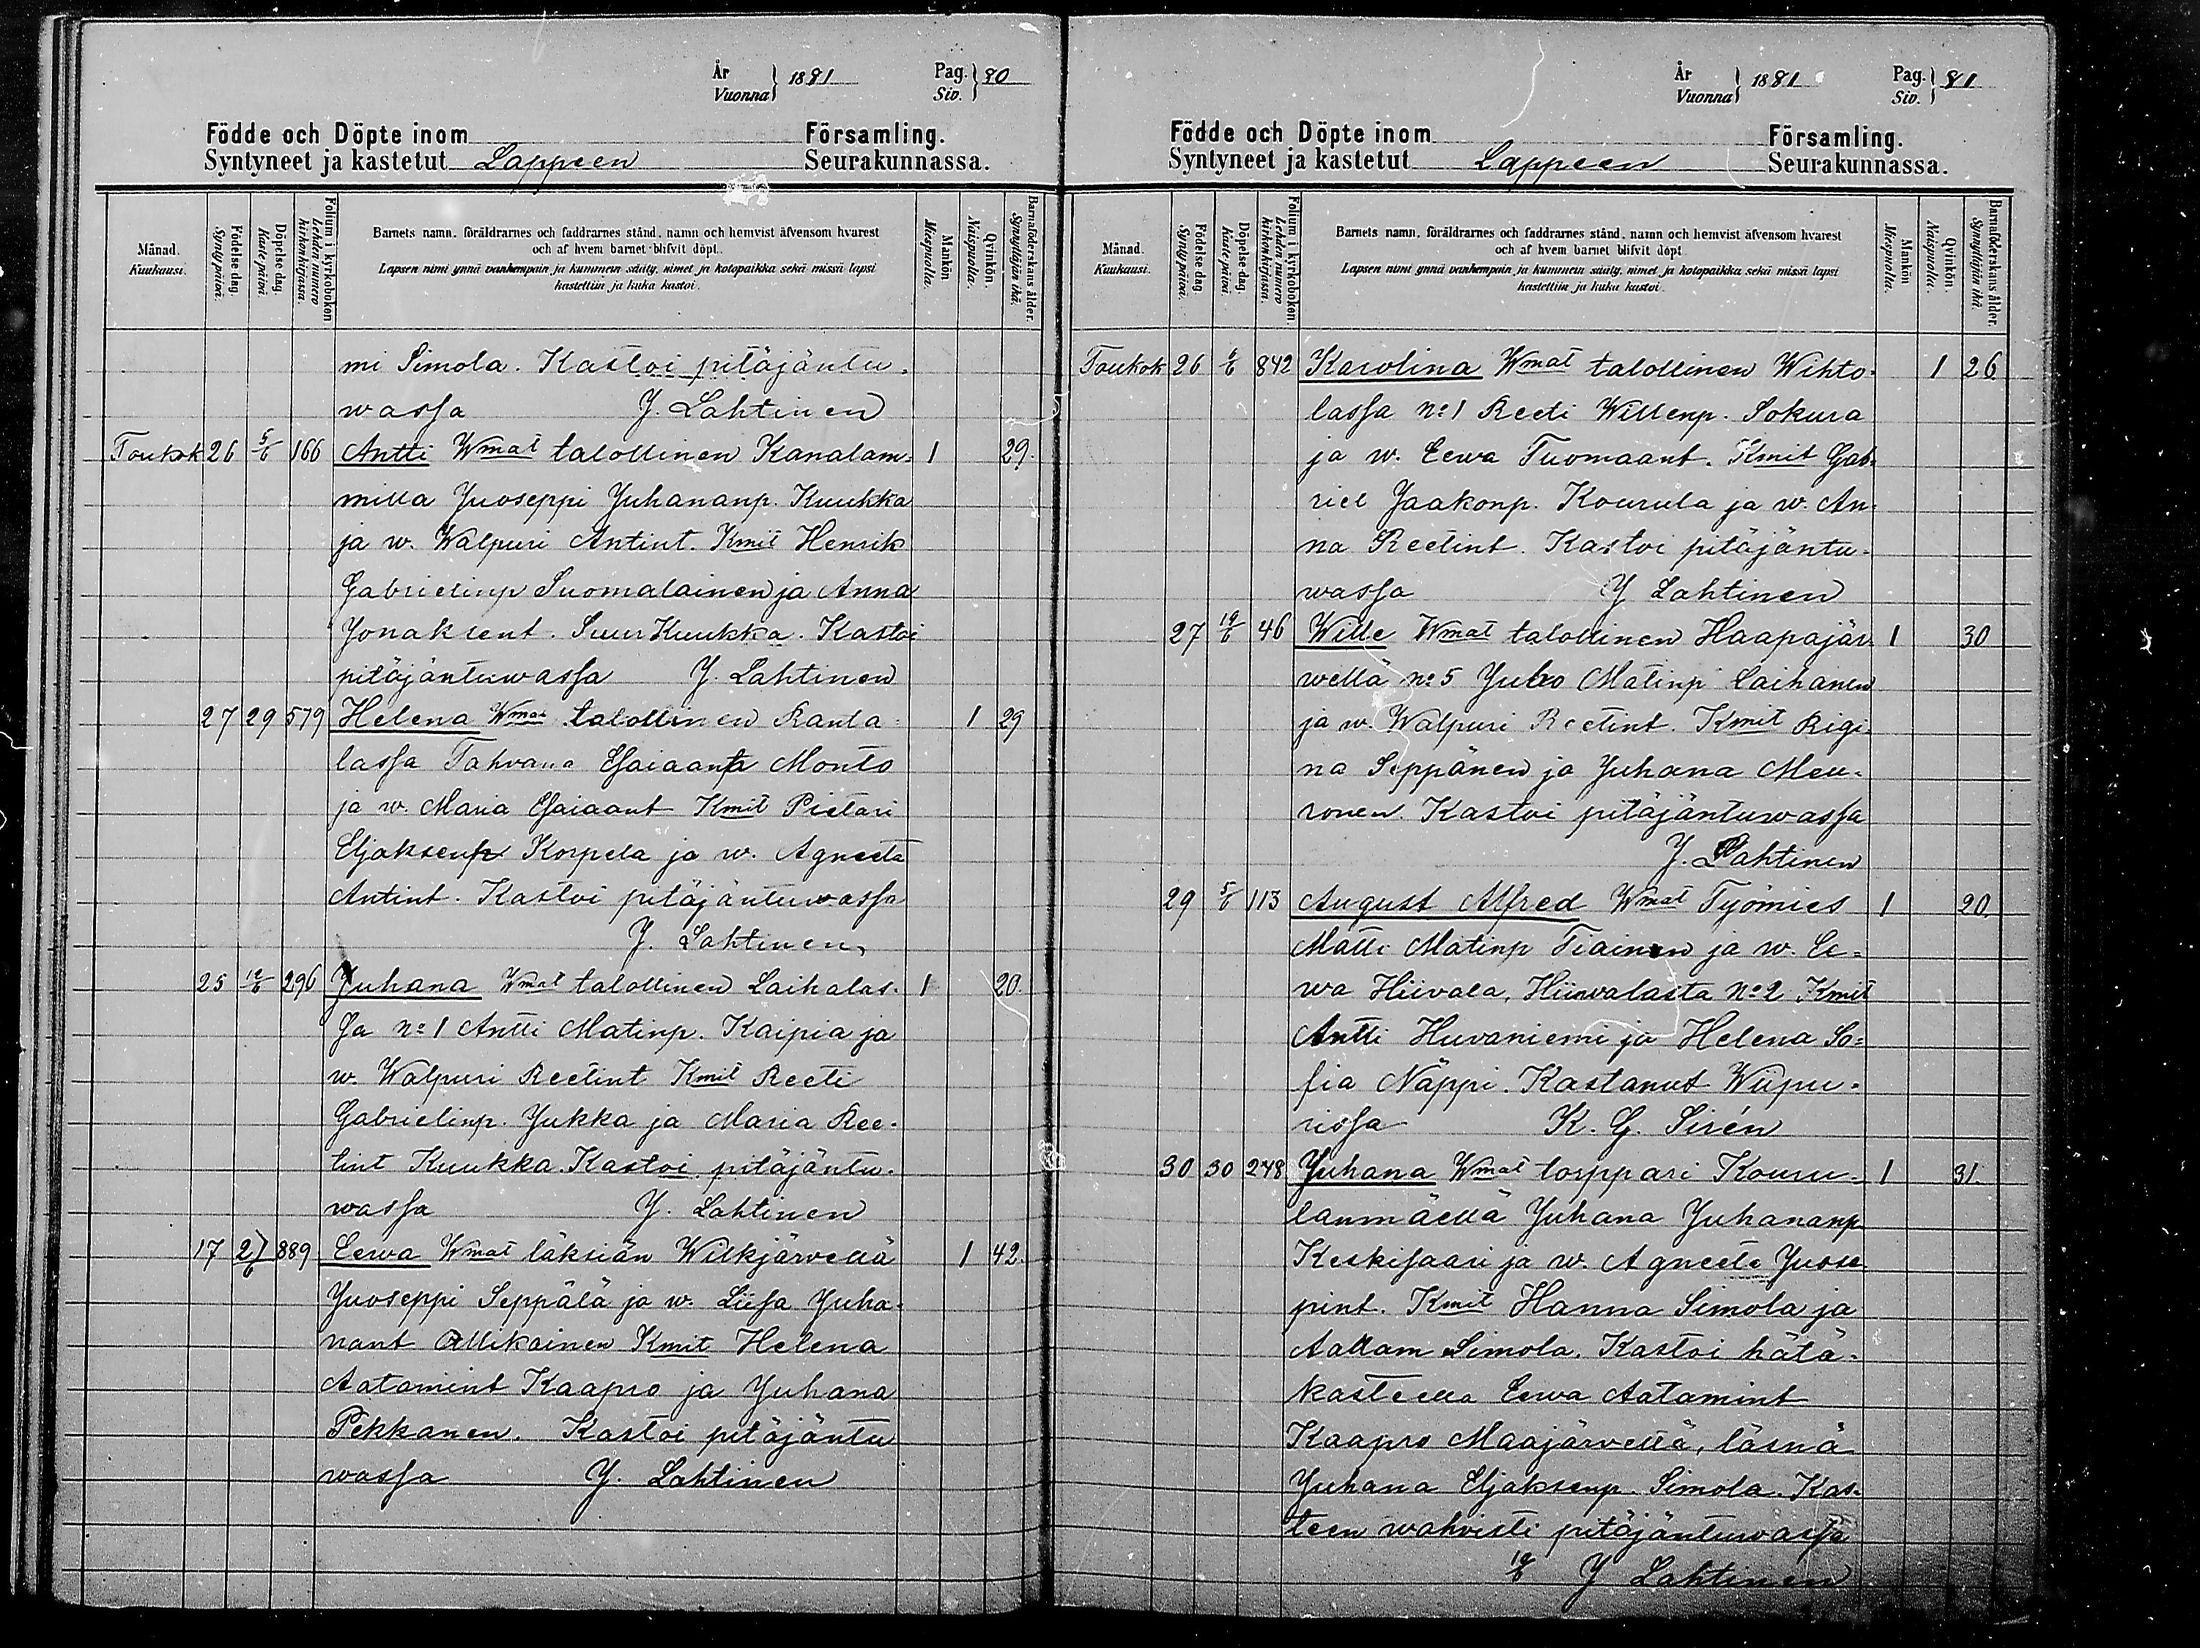 År
Vuonna } 1881
Pag.
Siv. } 80
Födde och Döpte inom Församling.
Syntyneet ja kastetut Lappeen Seurakunnassa.
Månad.
Kuukausi.
Födelse dag.
Synty päivä.
Döpelse dag.
Kaste päivä.
Folium i kyrkoboken
Lehden numero kirkonkirjassa.
Barnets namn, föräldrarnes och faddrarnes stånd, namn och hemvist äfvensom hvarest
och af hvem barnet blifvit döpt.
Lapsen nimi ynnä vanhempain ja kummein sääty, nimet ja kotopaikka sekä missä lapsi
kastettiin ja kuka kastoi.
Mankön
Miespuolia.
Qvinkön.
Naispuolia.
Barnaföderskans ålder.
Synnyttäjän ikä.
mi Simola. Kastoi pitäjäntu-
wassa Y. Lahtinen
Toukok 26 5/6 166 Antti Wmat talollinen Kanalam- 1 29.
milla Yuoseppi Yuhananp. Kuukka
ja w. Walpuri Antint. Kmit Henrik
Gabrielinp Suomalainen ja Anna
Yonaksent. Suur Kuukka. Kastoi
pitäjäntuwassa Y. Lahtinen
27 29 579 Helena Wmat talollinen Ranta- 1 29
lassa Tahvana Esaiaanp Monto
ja w. Maria Esaiaant Kmit Pietari
Eljaksenp Korpela ja w. Agneeta
Antint. Kastoi pitäjäntuwassa
Y. Lahtinen
25 12/6 296 Yuhana Wmat talollinen Laihalas- 1 20.
sa No 1 Antti Matinp. Kaipia ja
w. Walpuri Reetint Kmit Reeti
Gabrielinp. Yukka ja Maria Ree-
tint Kuukka. Kastoi pitäjäntu-
wassa Y. Lahtinen
17 27/6 889 Eewa Wmat läksiän Wilkjärvellä 1 42.
Yuoseppi Seppälä ja w. Liisa Yuha-
nant Ollikainen Kmit Helena
Aatamint Kaapro ja Yuhana
Pekkanen. Kastoi pitäjäntu
wassa Y. Lahtinen
År
Vuonna } 1881
Pag.
Siv. } 81
Födde och Döpte inom Församling.
Syntyneet ja kastetut Lappeen Seurakunnassa.
Månad.
Kuukausi.
Födelse dag
Synty päivä.
Döpelse dag.
Kaste päivä.
Folium i kyrkoboken.
Lehden numero kirkonkirjassa.
Barnets namn, föräldrarnes och faddrarnes stånd, namn och hemvist äfvensom hvarest
och af hvem barnet blifvit döpt
Lapsen nimi ynnä vanhempain ja kummein sääty, nimet ja kotopaikka sekä missä lapsi
kastettiin ja kuka kastoi.
Mankön
Miespuolia.
Qvinkön.
Naispuolia.
Barnaföderskans ålder.
Synnyttäjän ikä.
Toukok 26 6/6 842 Karolina Wmat talollinen Wihto- 1 26
lassa No 1 Reeti Willenp. Sokura
ja w. Eewa Tuomaant. Kmit Gab-
riel Yaakonp. Kourula ja w. An-
na Reetint. Kastoi pitäjäntu-
wassa Y Lahtinen
27 19/6 46 Wille Wmat talollinen Haapajär- 1 30
wellä No 5 Yuho Matinp Laihanen
ja w. Walpuri Reetint. Kmit Rigi-
na Seppänen ja Yuhana Meu-
ronen. Kastoi pitäjäntuwassa
Y. Lahtinen
29 5/6 113 August Alfred Wmat Työmies 1 20
Matti Matinp Tiainen ja w. Ee=
wa Hiivala, Hiiwalasta No 2 Kmit
Antti Huvaniemi ja Helena So=
fia Näppi. Kastanut Wiipu-
rissa K. G. Sirén
30 30 248 Yuhana Wmat torppari Kouru- 1 31.
lanmäellä Yuhana Yuhananp
Keskisaari ja w. Agneeta Yuose
pint. Kmit Hanna Simola ja
Aattam Simola. Kastoi hätä-
kasteella Eewa Aatamint
Kaapro Maajärvellä, läsnä
Yuhana Eljaksenp. Simola. Kas-
teen wahvisti pitäjäntuwassa
19/6 Y Lahtinen